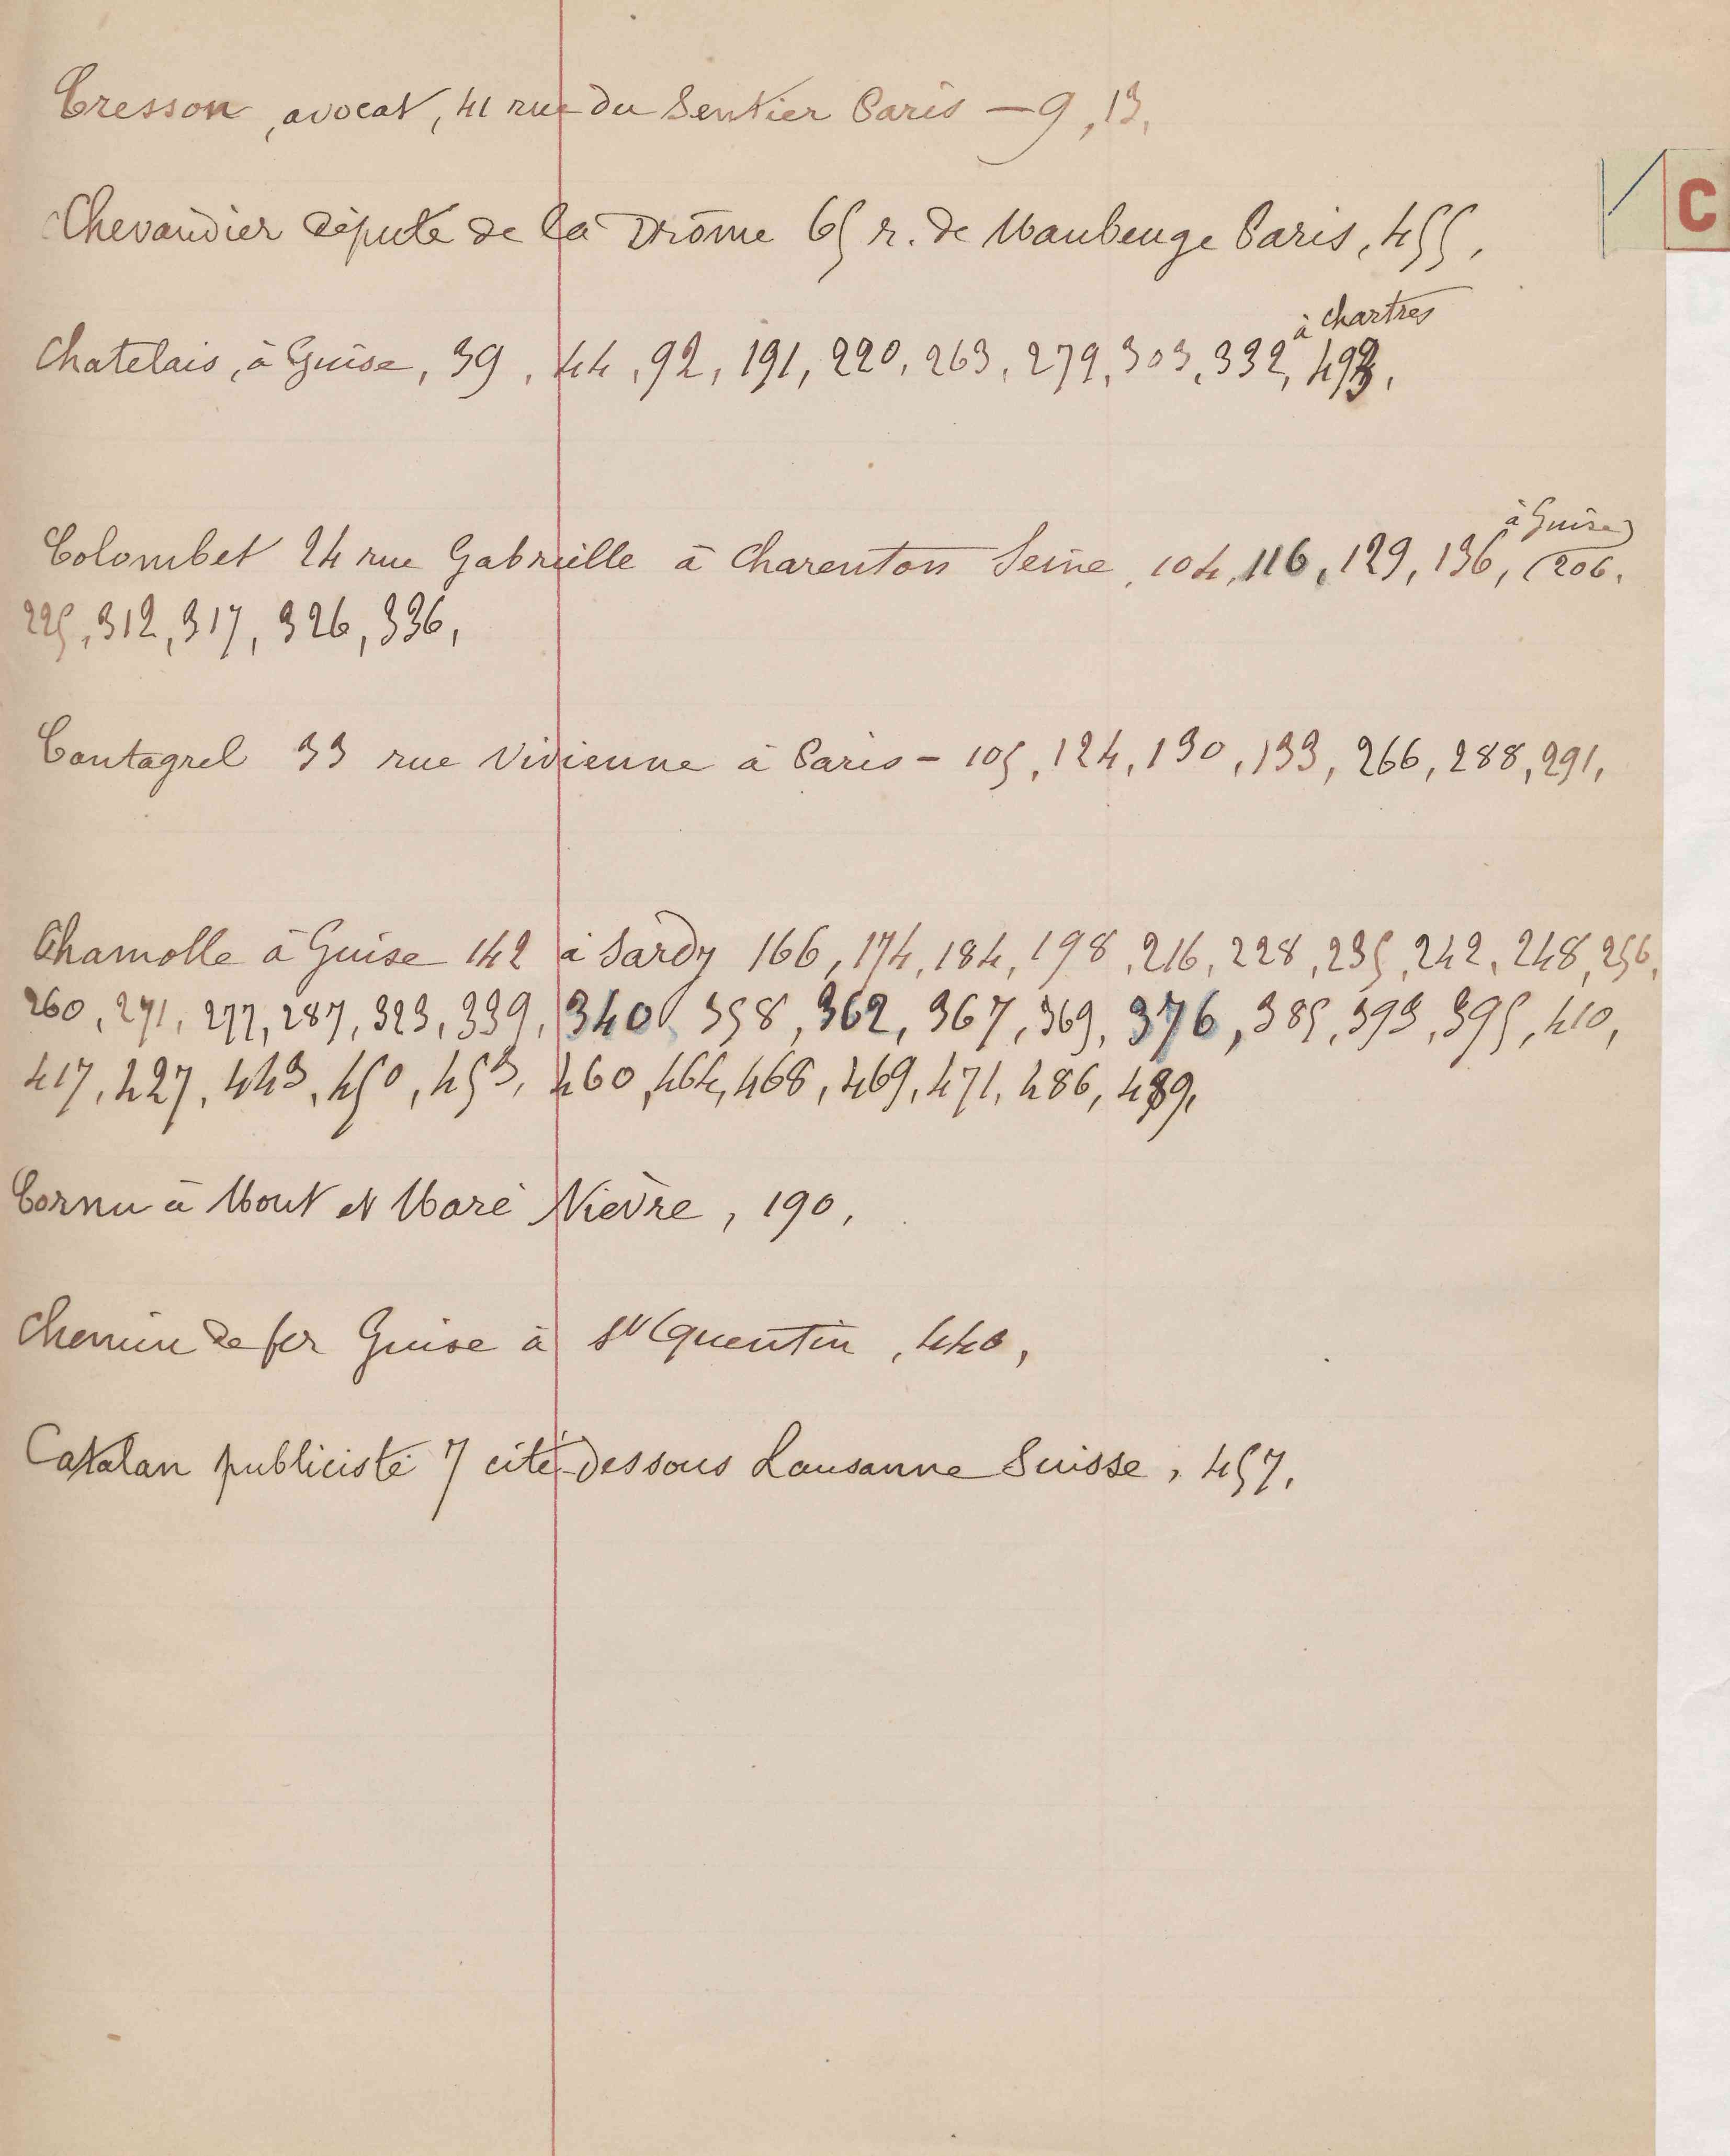 Cresson, avocat, 41 rue du Sentier Paris — 9, 13,
C
Chevandier député de la Drôme 65 r. de Maubeuge Paris, 455,
à Chartres
Chatelais, à Guise, 39, 44, 92, 191, 220, 263, 279, 303, 332, 493,
à Guise
Colombet 24 rue Gabrielle à Charenton Seine, 104, 116, 129, 136, 206,
225, 312, 317, 326, 336,
Cantagrel 33 rue Vivienne à Paris — 105, 124, 130, 133, 266, 288, 291,
Chamolle à Guise 142 à Sardy 166, 174, 184, 198, 216, 228, 235, 242, 248, 256,
260, 271, 277, 287, 323, 339, 340, 358, 362, 367, 369, 376, 385, 393, 395, 410,
417, 427, 443, 450, 453, 460, 464, 468, 469, 471, 486, 489,
Cornu à Mont et Maré Nièvre, 190,
Chemin de fer Guise à St Quentin, 440,
Catalan publiciste 7 cité-dessous Lausanne Suisse, 457,